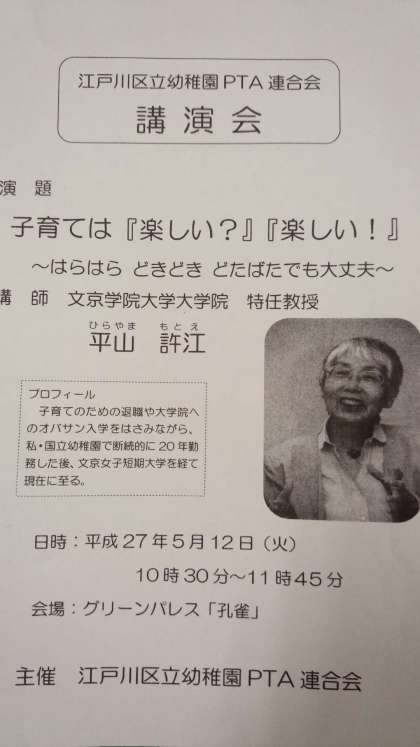 江戸川区立幼稚園PTA連合会
講演会
演題
子育ては『楽しい?』『楽しい!』
~はらはら どきどき どたばたでも大丈夫~
講師 文京学院大学大学院 特任教授
ひらやま もとえ
平山 許江
プロフィール
子育てのための退職や大学院へ
のオバサン入学をはさみながら、
私・国立幼稚園で断続的に20年勤
務した後、文京女子短期大学を経て
現在に至る。
日時:平成27年5月12日(火)
10時30分~11時45分
会場:グリーンパレス「孔雀」
主催 江戸川区立幼稚園PTA連合会